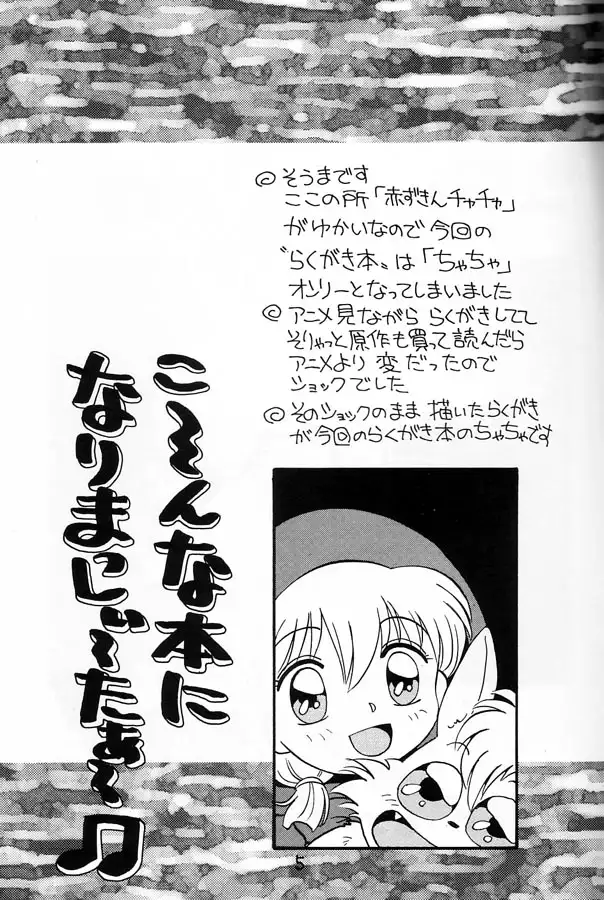 © そうまです
ここの所「赤ずきんチャチャ」
がゆかいなので今回の
〝らくがき本〟は「ちゃちゃ」
オンリーとなってしまいました
© アニメ見ながら らくがきしてて
そりゃっと原作も買って読んだら
アニメより 変だったので
ショックでした
© そのショックのまま 描いたらくがき
が今回のらくがき本のちゃちゃです
こ〜んな本に
なりまっし〜たぁ〜♫
5